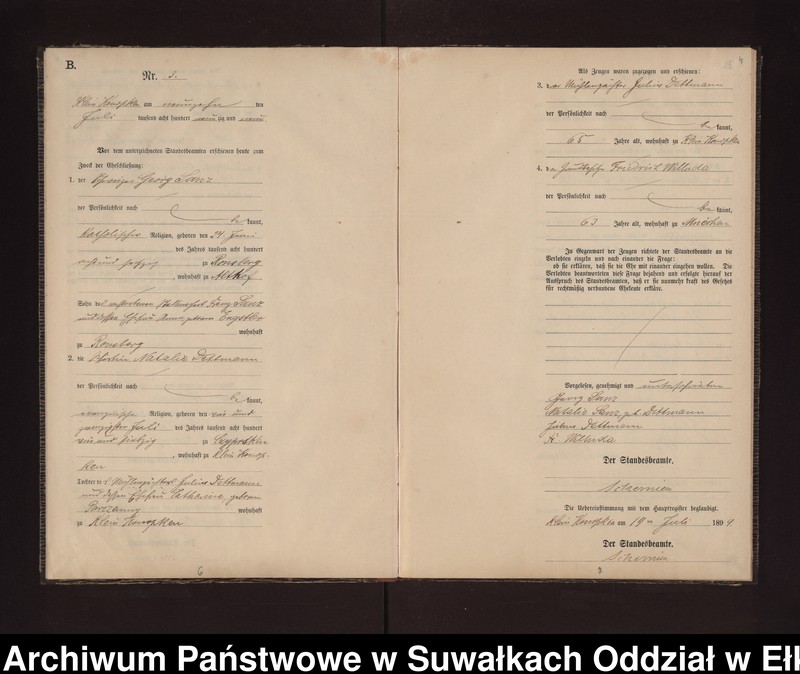 B.
Nr. 3.
Klein Konopken am neunzehn ten
Juli tausend acht hundert neunzig und
Vor dem unterzeichneten Standesbeamten erschienen heute zum
Zweck der Eheschließung:
1. der Georg Lanz
der Persönlichkeit nach
be kannt,
katholischer Religion, geboren den 24. Juni
des Jahres tausend acht hundert
acht und sechzig zu Ronsberg
, wohnhaft zu Althof
Sohn des verstorbenen Franz Lanz
und dessen Ehefrau Anna geborene Engstler
wohnhaft
zu Ronsberg
2. die Natalie Dettmann
der Persönlichkeit nach
be kannt,
evangelischer Religion, geboren den vier und
zwanzigsten Juli des Jahres tausend acht hundert
vier und siebzig zu
, wohnhaft zu Klein Konop-
ken
Tochter des Mühlenpächters Julius Dettmann
und dessen Ehefrau Katharine, geboren
wohnhaft
zu Klein Konopken
6
4
Als Zeugen waren zugezogen und erschienen:
3. der Mühlenpächter Julius Dettmann
der Persönlichkeit nach
be kannt,
65 Jahre alt, wohnhaft zu Klein Konopken
4. der Friedrich Willuda
der Persönlichkeit nach
be kannt,
63 Jahre alt, wohnhaft zu
In Gegenwart der Zeugen richtete der Standesbeamte an die
Verlobten einzeln und nach einander die Frage:
ob sie erklären, daß sie die Ehe mit einander eingehen wollen. Die
Verlobten beantworteten diese Frage bejahend und erfolgte hierauf der
Ausspruch des Standesbeamten, daß er sie nunmehr kraft des Gesetzes
für rechtmäßig verbundene Eheleute erkläre.
Vorgelesen, genehmigt und unterschrieben
Georg Lanz
Natalie Lanz, geb. Dettmann
Julius Dettmann
F. Willuda
Der Standesbeamte.
Die Uebereinstimmung mit dem Hauptregister beglaubigt.
Klein Konopken am 19ten Juli 1899
Der Standesbeamte.
Archiwum Państwowe w Suwałkach Oddział w Ełk